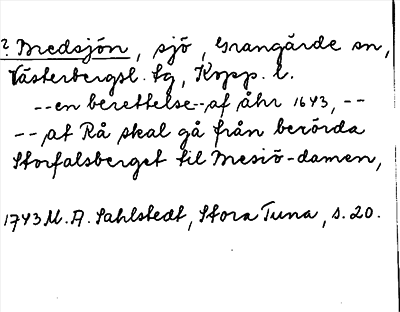 ? Bredsjön, sjö, Grangärde sn,
Västerbergsl. fg, Kopp. l.
--en berettelse--af åhr 1643, --
-- at Rå skal gå från berörda
Storfalsberget til Mesiö-damen,
1743 M. A. Sahlstedt, Stora Tuna, s. 20.